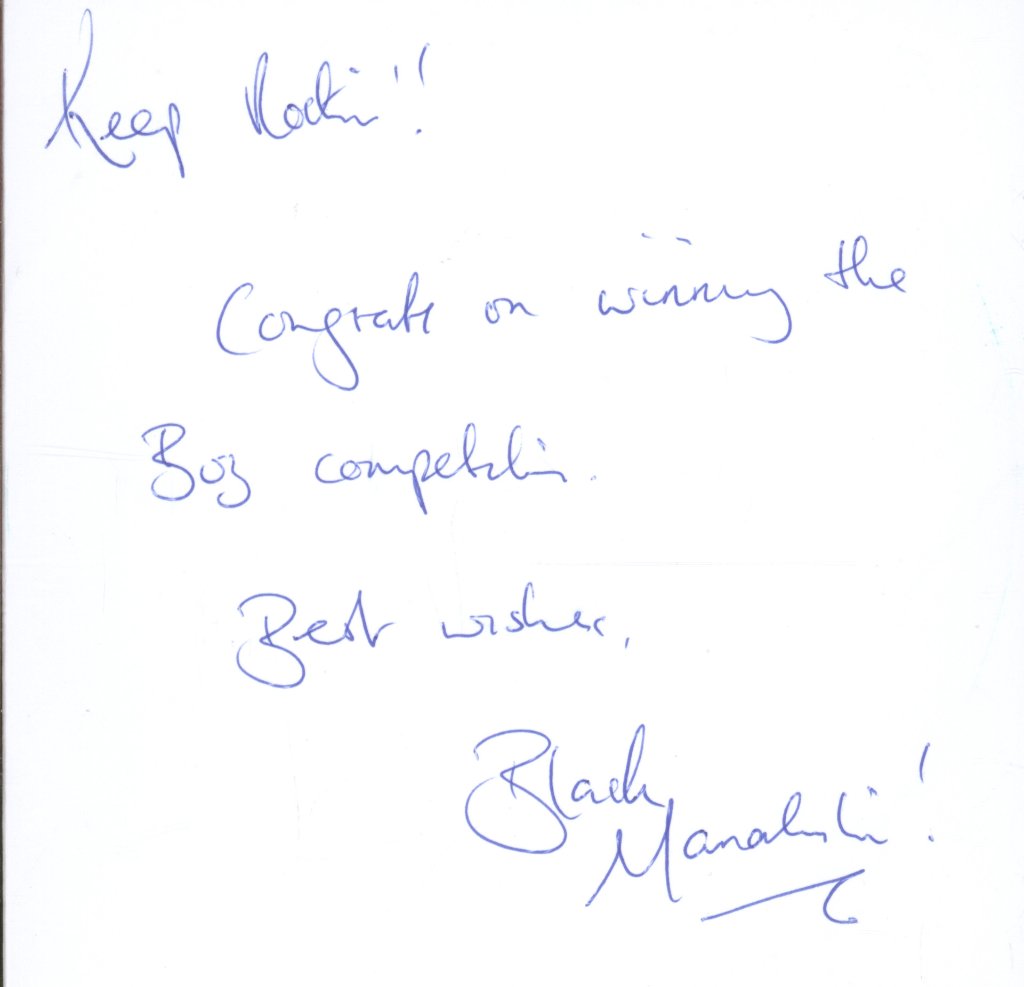 Keep Rockin'!
Congrats on winning the
Boz competition.
Best wishes,
Black
Manalishi!